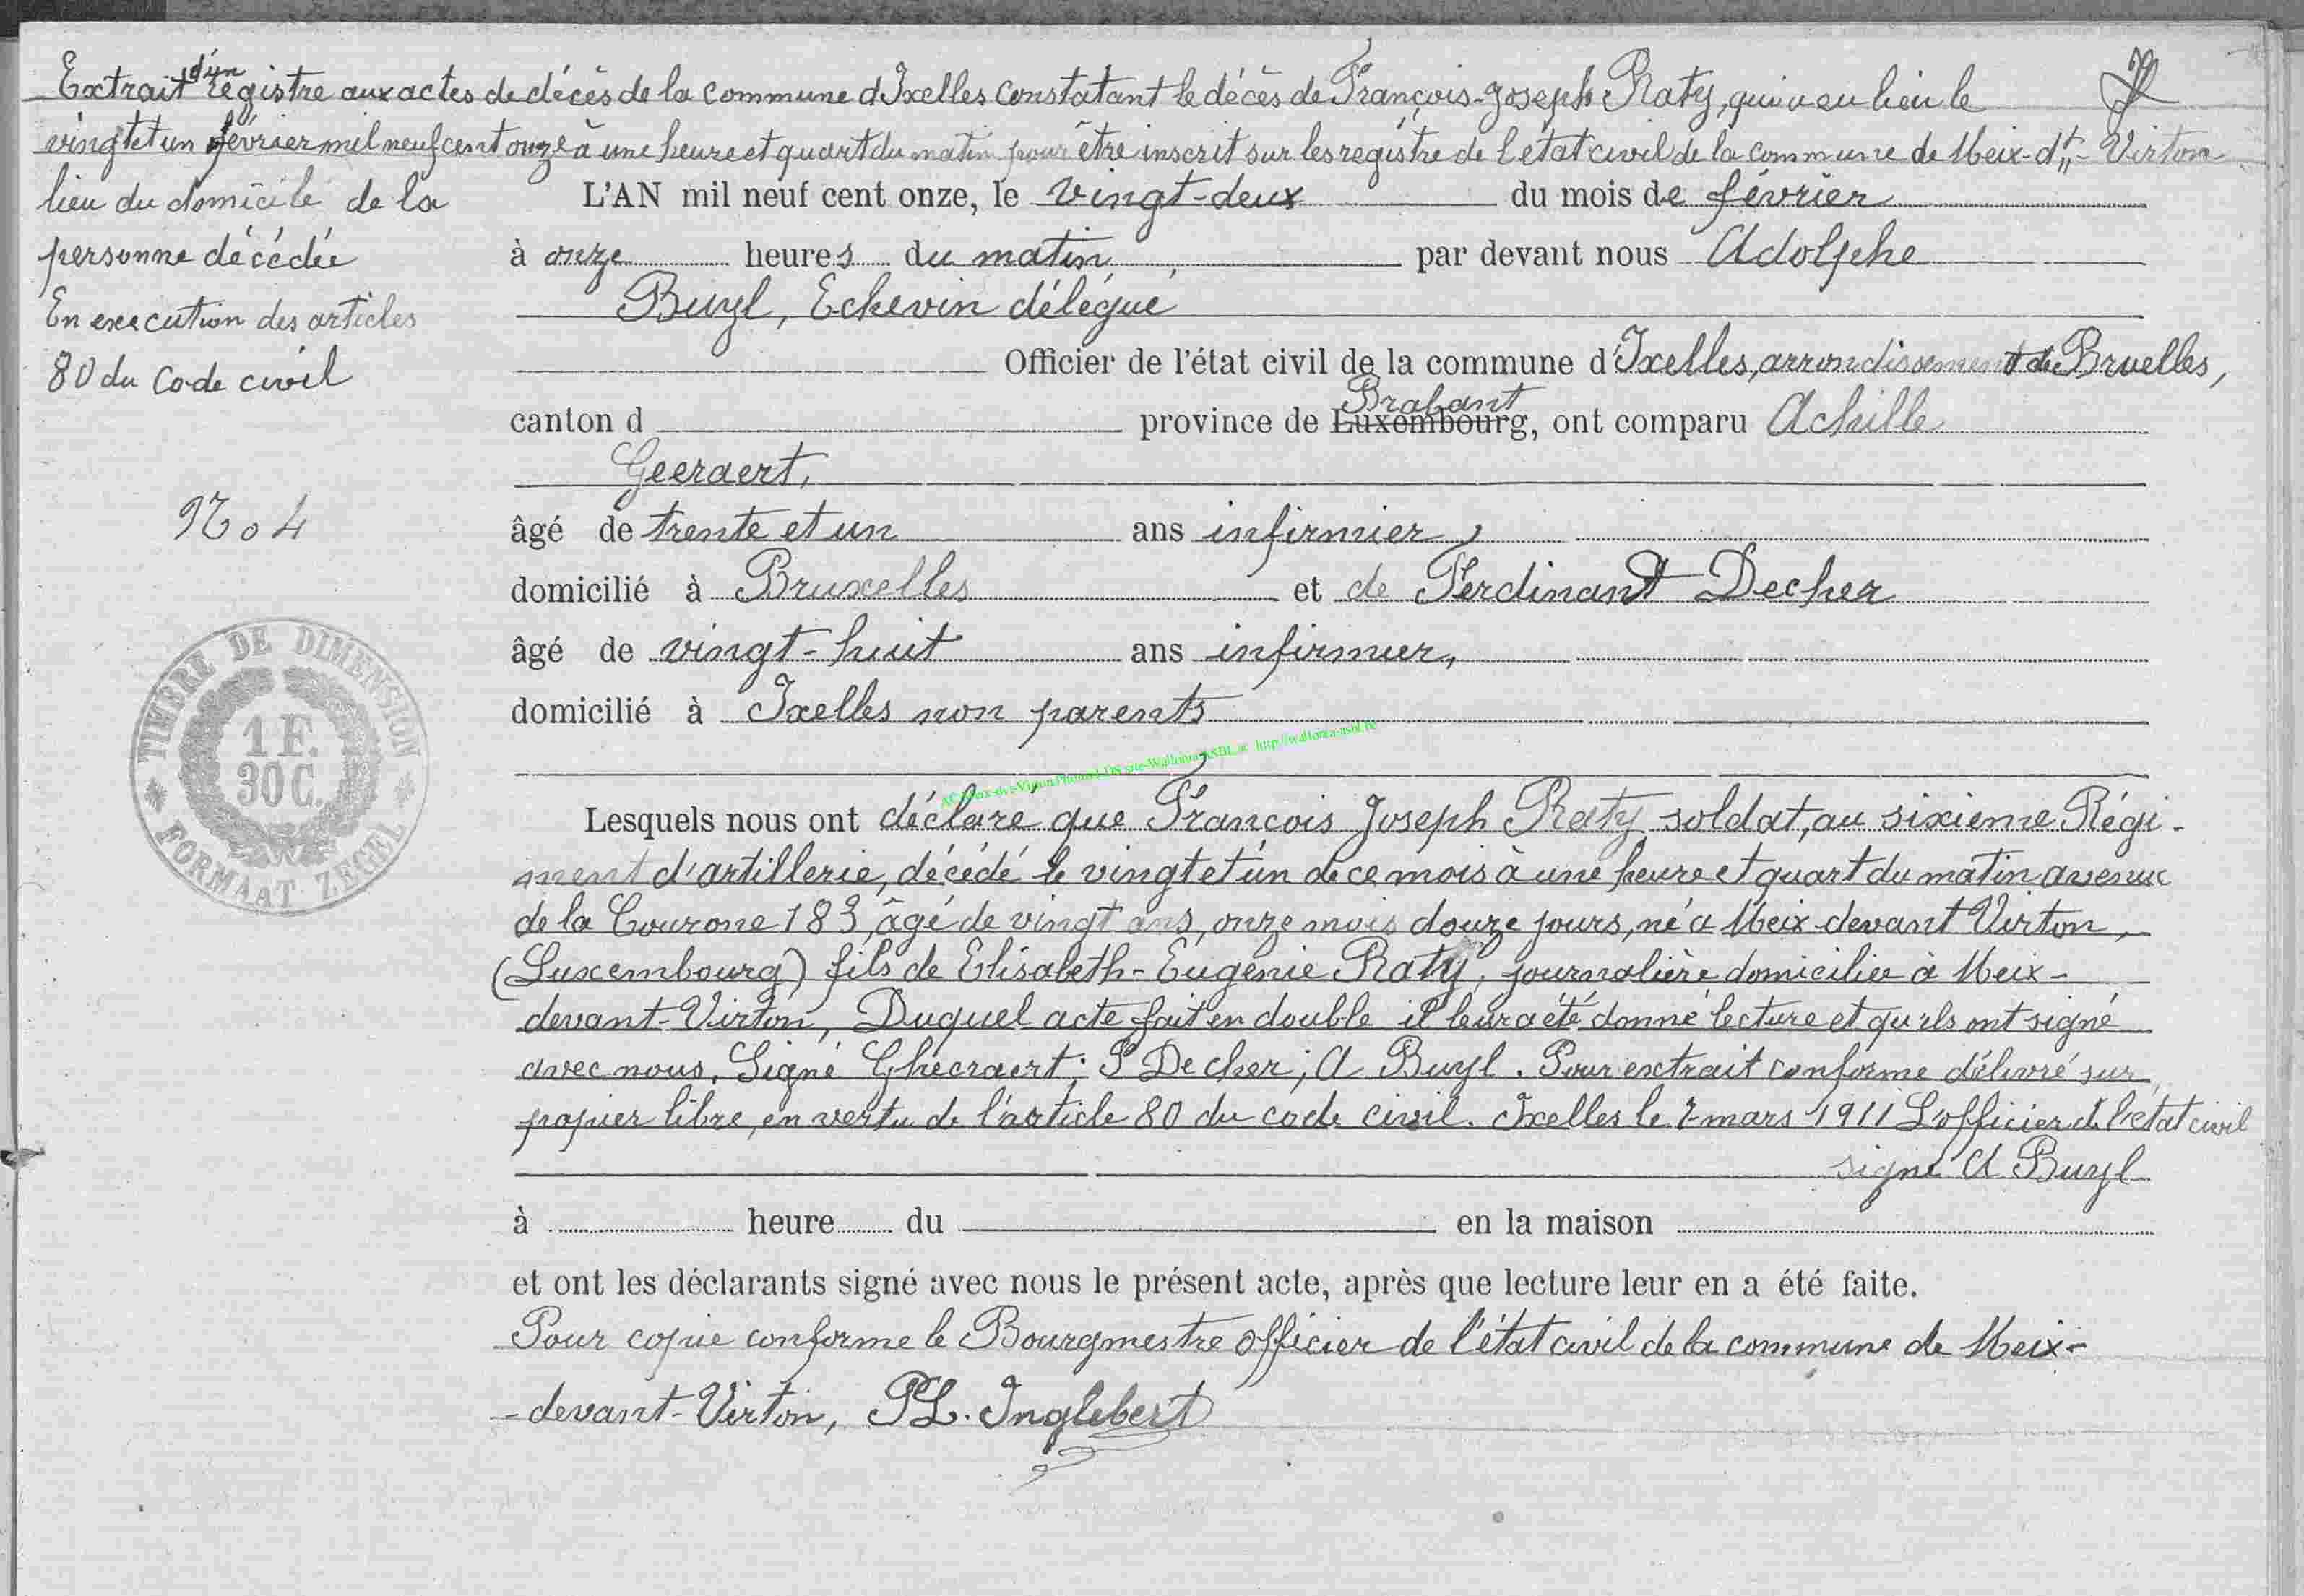 Extrait d'un registre aux actes de décès de la commune d'Ixelles constatant le décès de François-Joseph Raty, qui a eu lieu le
vingt et un février mil neuf cent onze à une heure et quart du matin pour être inscrit sur les registre de l'état civil de la commune de Meix-dt-Virton
lieu du domicile de la
personne décédée
En execution des articles
80 du Code civil
No 4
TIMBRE DE DIMENSION
1 F.
30 C.
FORMAAT ZEGEL
L'AN mil neuf cent onze, le vingt-deux du mois de février
à onze heures du matin, par devant nous Adolphe
Buyl, Echevin délégué
Officier de l'état civil de la commune d'Ixelles, arrondissement de Bruelles,
canton d province de Luxembourg Brabant, ont comparu Achille
Geeraert,
âgé de trente et un ans infirmier,
domicilié à Bruxelles et de Ferdinand Decher
âgé de vingt-huit ans infirmier,
domicilié à Ixelles non parents
http://wallonia-asbl.be
Lesquels nous ont déclaré que François Joseph Raty soldat, au sixieme Régi-
ment d'artillerie, décédé le vingt et un de ce mois à une heure et quart du matin avenue
de la Courone 183, âgé de vingt ans, onze mois douze jours, né à Meix devant Virton,
(Luxembourg) fils de Elisabeth-Eugénie Raty, journalière domiciliée à Meix-
devant-Virton, Duquel acte fait en double il leur a été donné lecture et qu'ils ont signé
avec nous. Signé Gheeraert; F Decher; A Buyl. Pour extrait conforme délivré sur
papier libre, en vertu de l'article 80 du code civil. Ixelles le 7 mars 1911 L'officier de l'état civil
signé A Buyl
à heure du en la maison
et ont les déclarants signé avec nous le présent acte, après que lecture leur en a été faite.
Pour copie conforme le Bourgmestre officier de l'état civil de la commune de Meix-
-devant-Virton, PL. Inglebert